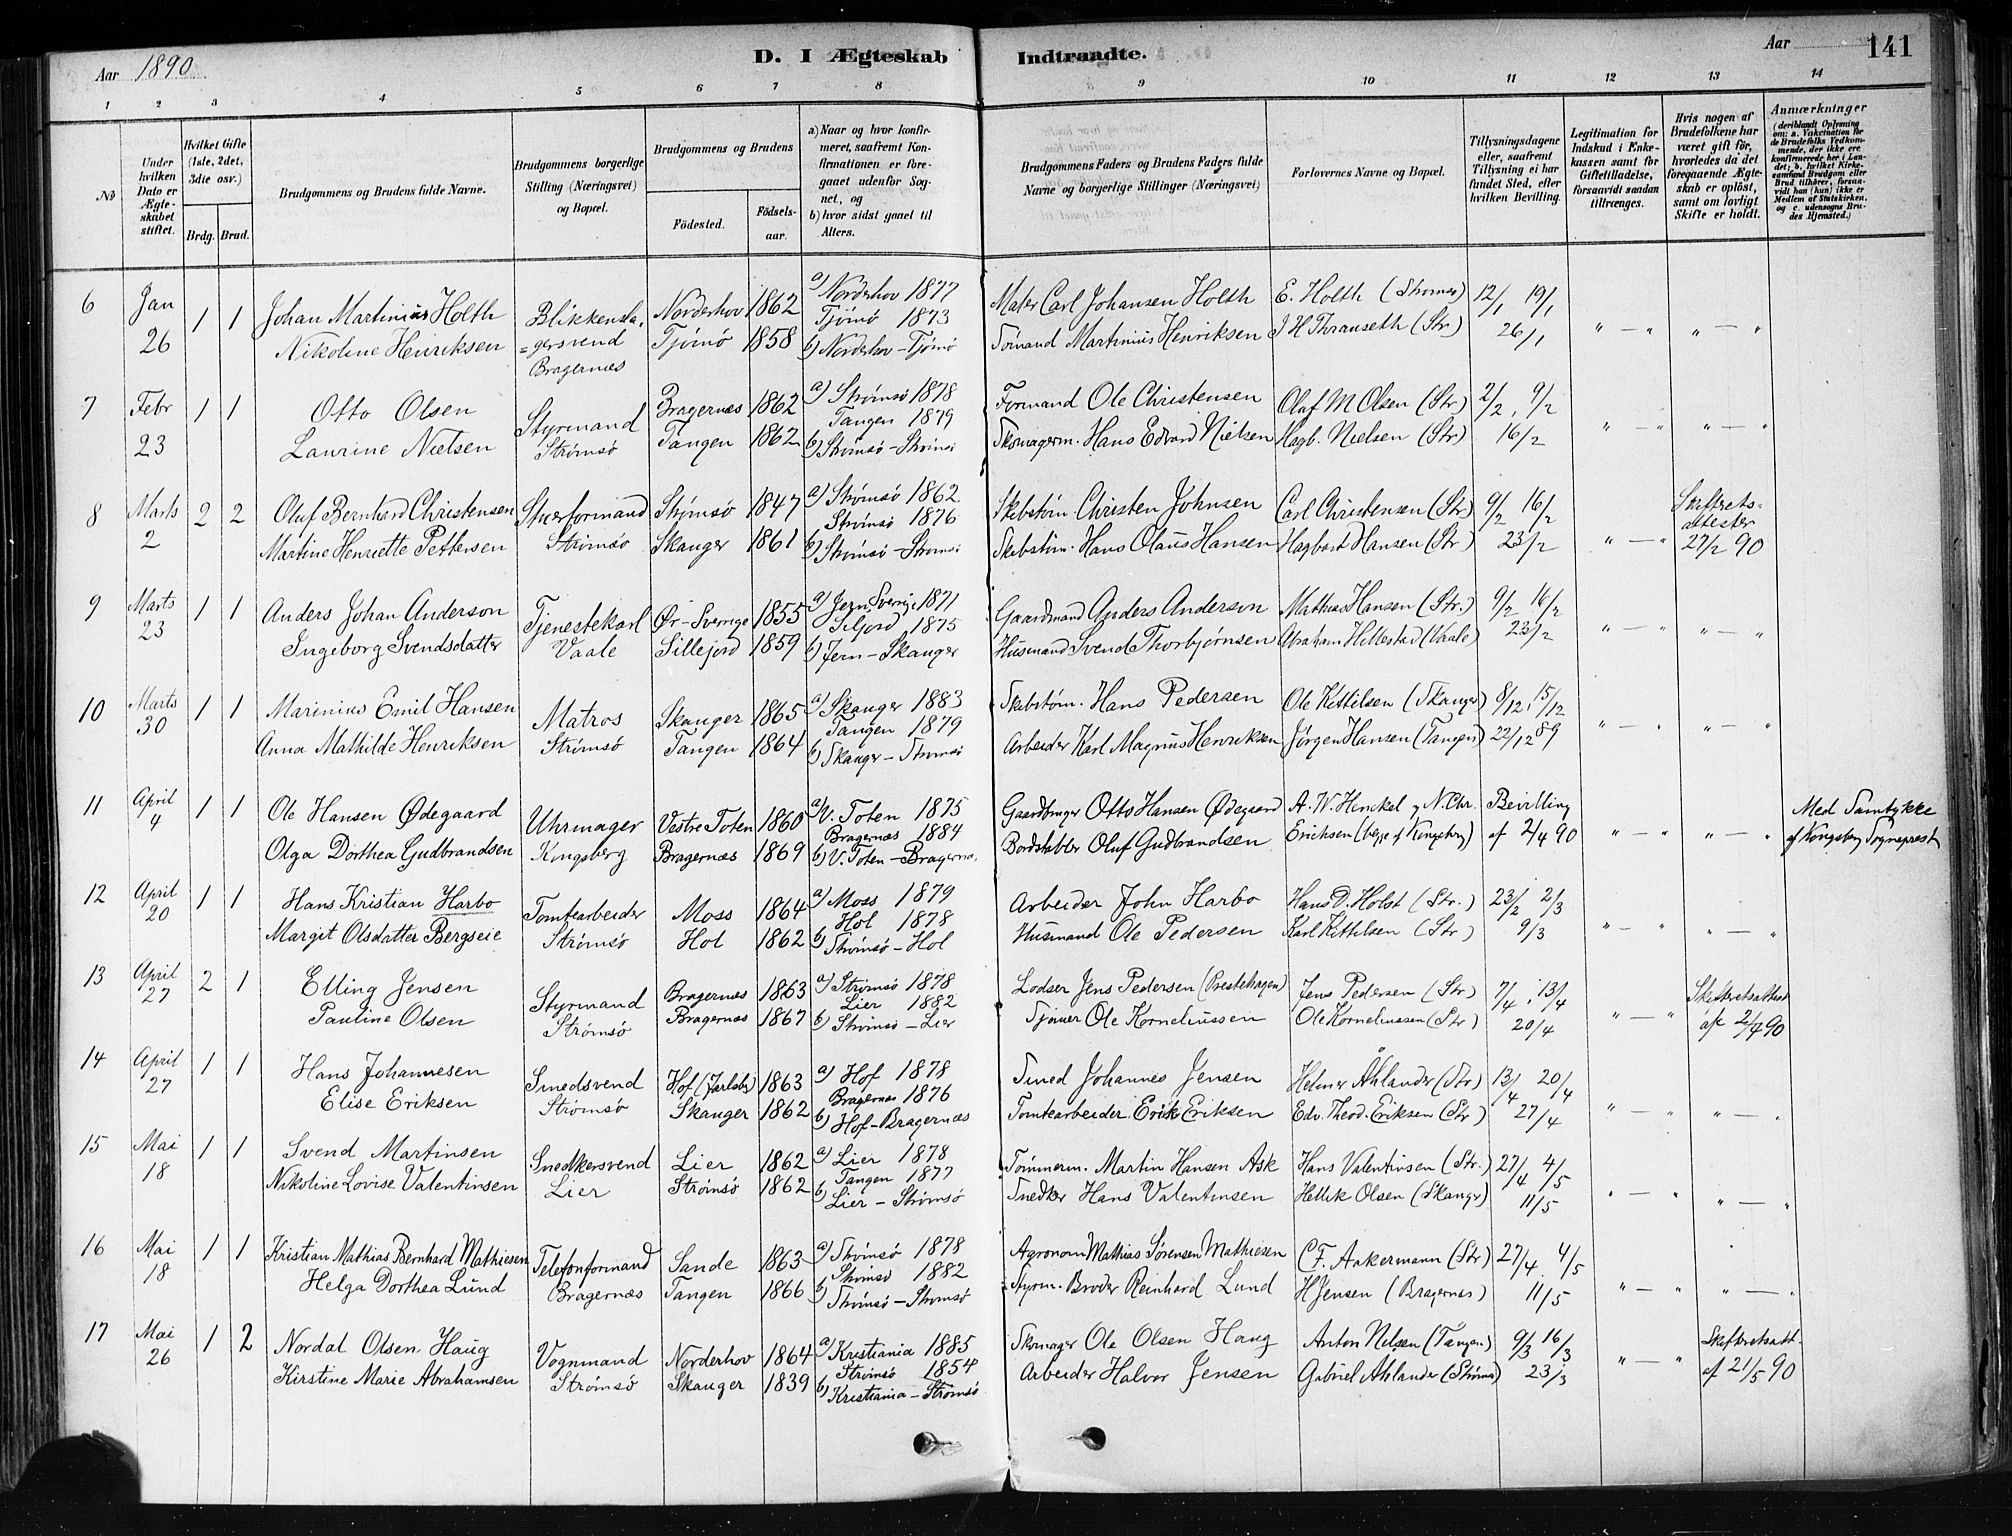 Aar 1890.
D. I Ægteskab Indtraadte.
Aar
141
1 2 3 4 5 6 7 8 8 9 10 11 12 13 14
№
Under hvilken Dato er Ægteskabet stiftet.
Hvilket Gifte (1ste, 2det, 3die osv.)
Brdg. Brud.
Brudgommens og Brudens fulde Navne.
Brudgommens borgerlige Stilling (Næringsvei) og Bopæl.
Brudgommens og Brudens
Fødested. Fødselsaar.
a) Naar og hvor konfirmeret, saafremt Konfirmationen er foregaaet udenfor Sognet, og
b) hvor sidst gaaet til Alters.
Brudgommens Faders og Brudens Faders fulde Navne og borgerlige Stillinger (Næringsvei)
Forlovernes Navne og Bopæl.
Tillysningsdagene eller, saafremt Tillysning ei har fundet Sted, efter hvilken Bevilling.
Legitimation for Indskud i Enkekassen samt for Giftetilladelse, forsaavidt saadan tiltrænges.
Hvis nogen af Brudefolkene har været gift før, hvorledes da det foregaaende Ægteskab er opløst, samt om lovligt Skifte er holdt.
Anmærkninger (deriblandt Oplysning om: a. Vakcination for de Brudefolks Vedkommende, der ikke ere konfirmerede her i Landet; b. hvilket Kirkesamfund Brudgom eller Brud tilhører, forsaavidt han (hun) ikke er Medlem af Statskirken, og c. udensogns Brudes Hjemsted.)
6 Jan 26 1 1 Johan Martinius Holth Blikkensla=gersvend Bragernæs Norderhov 1862 a) Norderhov 1877 Maler Carl Johansen Holth E. Holth (Strømsø) 12/1 19/1
Nikoline Henriksen Tjömö 1858 Tjömö 1873 b) Norderhov - Tjömö Sømand Martinius Henriksen J H Thranseth (Str) 26/1 " — " " — "
7 Febr 23 1 1 Otto Olsen Styrmand Strømsö Bragernæs 1862 a) Strømsö 1878 Formand Ole Christensen Oluf M Olsen (Str) 2/2, 9/2
Laurine Nielsen Tangen 1862 Tangen 1879 b) Strømsö - Strømsö Skomagerm. Hans Edvard Nielsen Hagb. Nielsen (Str) 16/2 " — " " — "
8 Marts 2 2 2 Oluf Bernhard Christensen Stuerformand Strømsö Strømsö 1847 a) Strømsö 1862 Skibstøm. Christen Johnsen Carl Christensen (Str) 9/2 16/2 Skifterets-attester
Martine Henriette Pettersen Skauger 1861 Strømsö 1876 b) Strømsö - Strømsö Skibstøm. Hans Olaus Hansen Hagbart Hansen (Str) 23/2 " — " 27/2 90
9 Marts 23 1 1 Anders Johan Anderson Tjenestekarl Vaale Ør-Sverrige 1855 a) Jern Sverige 1871 Gaardmand Anders Anderson Mathias Hansen (Str.) 9/2 16/2
Ingeborg Svendsdatter Sillejord 1859 Siljord 1875 b) Jern - Skauger Husmand Svend Thorbjørnsen Abraham Hillestad (Vaale) 23/2 " — " " — "
10 Marts 30 1 1 Marinius Emil Hansen Matros Strømsö Skauger 1865 a) Skauger 1883 Skibstøm. Hans Pedersen Ole Kittilsen (Skauger) 8/12, 15/12
Anna Mathilde Henriksen Tangen 1864 Tangen 1879 b) Skauger - Strømsö Arbeider Karl Magnus Henriksen Jørgen Hansen (Tangen) 22/12 89 " — " " — "
11 April 4 1 1 Ole Hansen Ødegaard Uhrmager Kongsberg Vestre Toten 1860 a) V. Toten 1875 Gaardbruger Otto Hansen Ødegaard A. W. Henckel og N. Chr. Bevilling Med Samtykke
Olga Dorthea Gudbrandsen Bragernæs 1869 Bragernæs 1884 b) V. Toten - Bragernæs Bordstabler Oluf Gudbrandsen Erichsen (begge af Kongsberg) af 2/4 90 " — " " — " af Kongsberg Sogneprest
12 April 20 1 1 Hans Kristian Harbo Tomtearbeider Strømsö Moss 1864 a) Moss 1879 Arbeider John Harbo Hans D. Holst (Str.) 23/2 2/3
Margit Olsdatter Bergseie Hol 1862 Hol 1878 b) Strømsö - Hol Husmand Ole Pedersen Karl Kittilsen (Str) 9/3 " — " " — "
13 April 27 2 1 Elling Jensen Styrmand Strømsö Bragernæs 1863 a) Strømsö 1878 Lodser Jens Pedersen (Prestehagen) Jens Pedersen (Str) 7/4, 13/4 Skifteretsattest
Pauline Olsen Bragernæs 1867 Lier 1882 b) Strømsö - Lier Ole Korneliussen Ole Korneliussen (Str) 20/4 " — " af 2/4 90
14 April 27 1 1 Hans Johannesen Smedsvend Strømsö Hof (Jarlsb) 1863 a) Hof 1878 Smed Johannes Jensen Helmer Åhlander (Str) 13/4 20/4
Elise Eriksen Skauger 1862 Bragernæs 1876 b) Hof - Bragernæs Tomtearbeider Erik Eriksen Edv. Theod. Eriksen (Str) 27/4 " — " " — "
15 Mai 18 1 1 Svend Martinsen Snedkersvend Lier Lier 1862 a) Lier 1878 Tømmerm. Martin Hansen Ask Hans Valentinsen (Str.) 27/4 4/5
Nikoline Lovise Valentinsen Strømsö 1862 Tangen 1877 b) Lier - Strømsö Snedker Hans Valentinsen Hellik Olsen (Skauger) 11/5 " — " " — "
16 Mai 18 1 1 Kristian Mathias Bernhard Mathiesen Telefonformand Bragernæs Sande 1863 a) Strømsö 1878 Agronom Mathias Sørensen Mathiesen C. F. Ankermann (Str) 27/4 4/5
Helga Dorthea Lund Tangen 1866 Strømsö 1882 b) Strømsö - Strømsö Styrm. Broder Reinhard Lund H Jensen (Bragernæs) 11/5 " — " " — "
17 Mai 26 1 2 Nordal Olsen Haug Vognmand Strømsö Norderhov 1864 a) Kristiania 1885 Skomager Ole Olsen Haug Anton Nilsen (Tangen) 9/3 16/3 Skifteretsatt.
Kirstine Marie Abrahamsen Skauger 1839 Strømsö 1854 b) Kristiania - Strømsö Arbeider Halvor Jensen Gabriel Ahlander (Strømsø) 23/3 " — " af 21/5 90